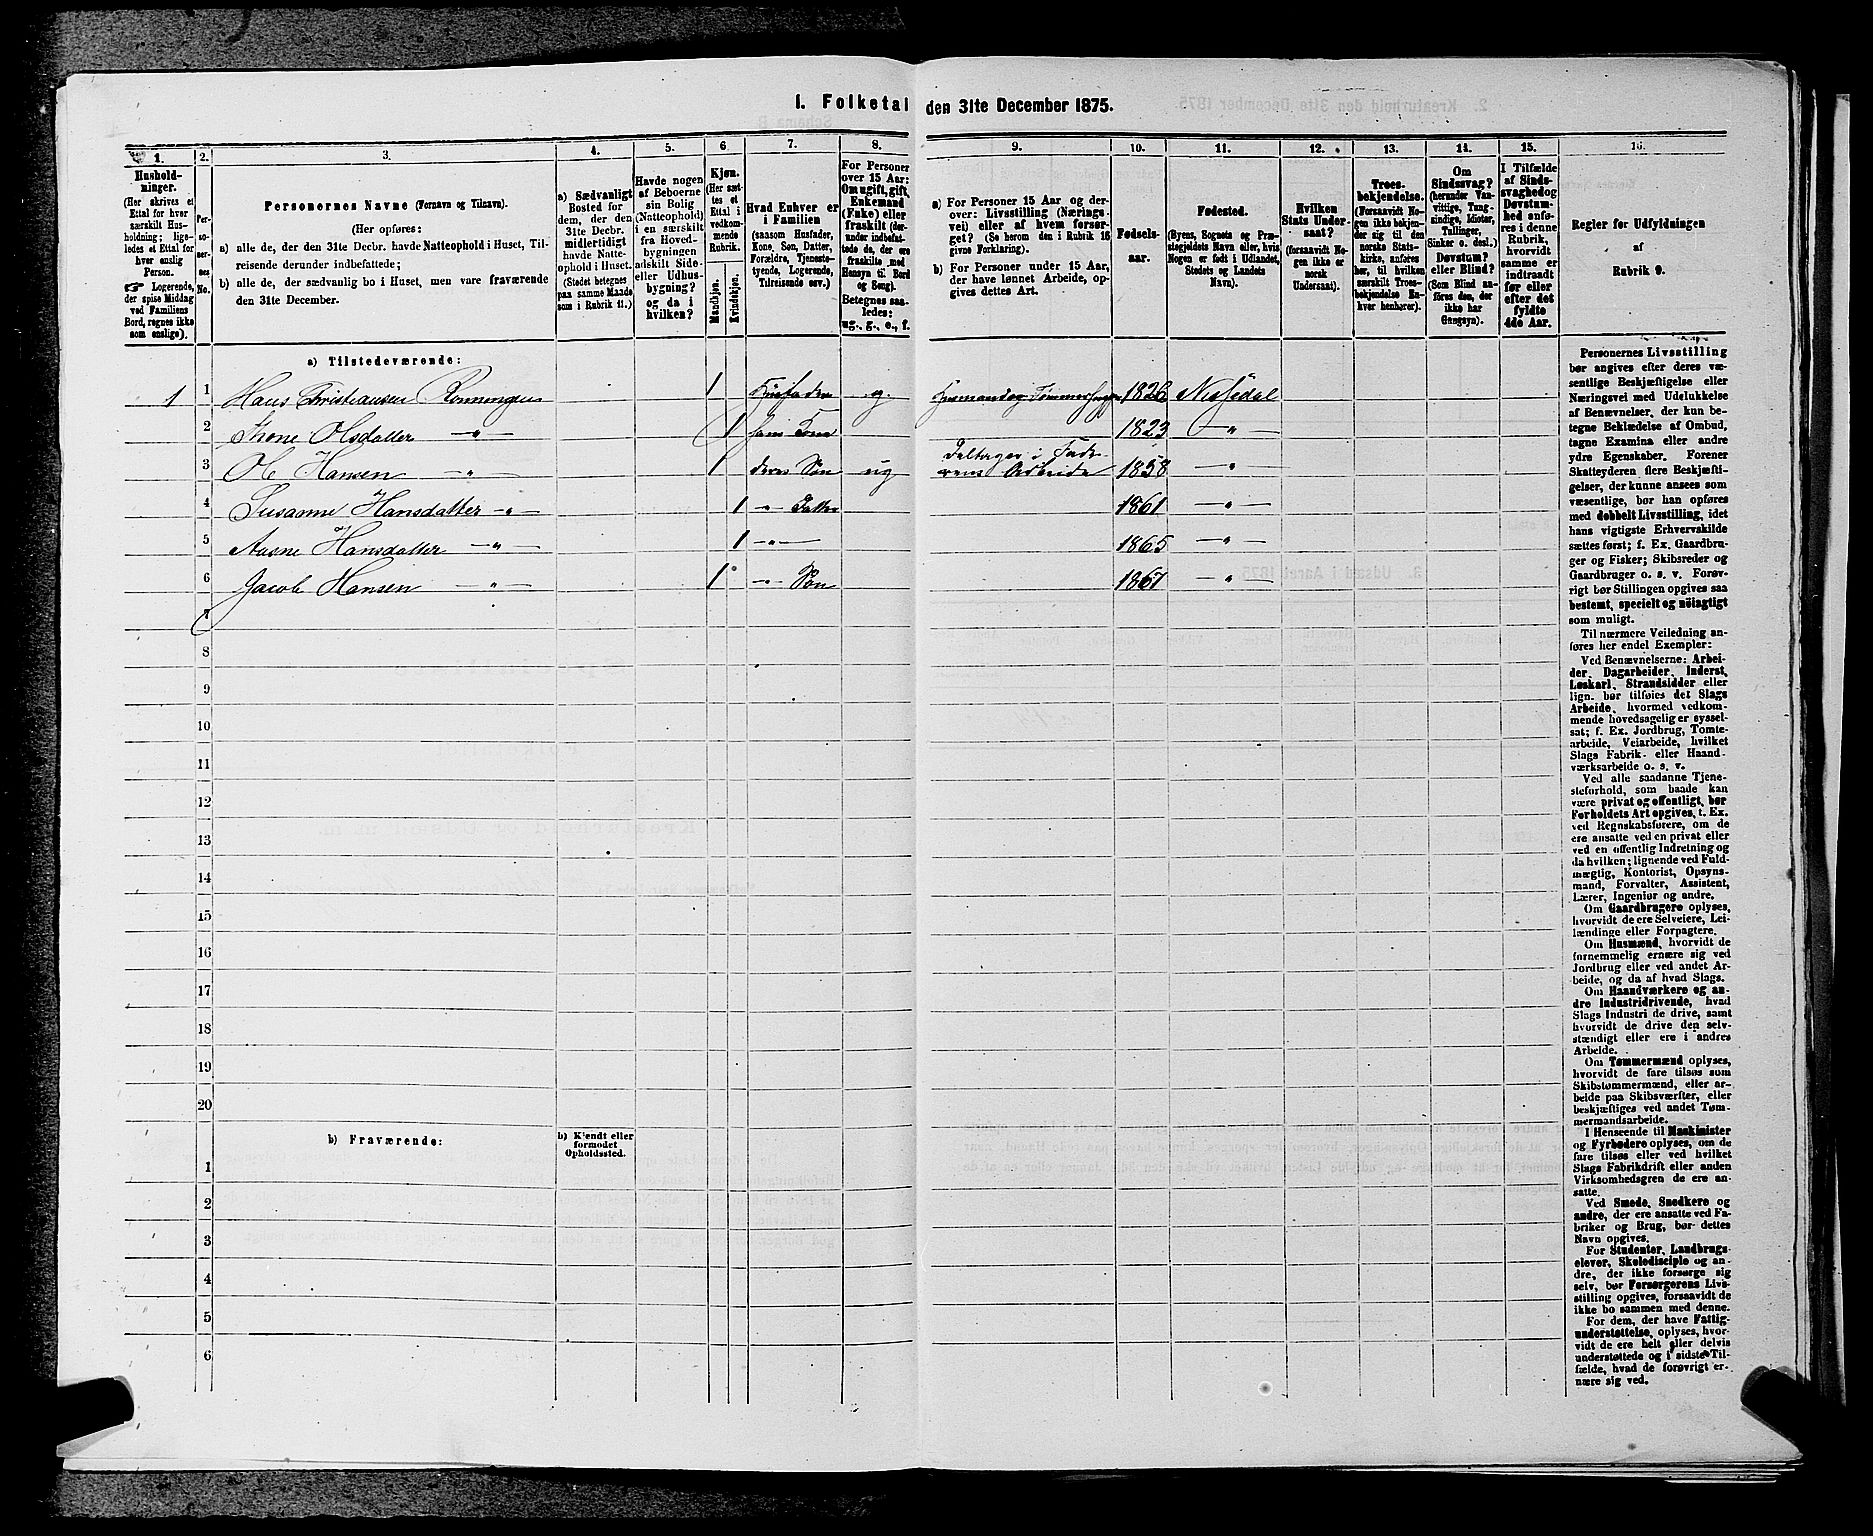 I. Folketal den 31te December 1875.
1.
Hushold-
ninger.
(Her skrives et
Ettal for hver
særskilt Hus-
holdning; lige-
ledes et Ettal for
hver enslig
Person.
☞ Logerende,
der spise Middag
ved Familiens
Bord, regnes ikke
som enslige).
2.
Per-
so-
ner-
nes
No.
3.
Personernes Navne (Fornavn og Tilnavn).
(Her opføres:
a) alle de, der den 31te Decbr. havde Natteophold i Huset, Til-
reisende derunder indbefattede;
b) alle de, der sædvanlig bo i Huset, men vare fraværende
den 31te December.
4.
a) Sædvanligt
Bosted for
dem, der den
31te Decbr.
midlertidigt
havde Natte-
ophold i Huset.
(Stedet betegnes
paa samme Maade
som i Rubrik 11.)
5.
Havde nogen
af Beboerne
sin Bolig
(Natteophold)
i en særskilt
fra Hoved-
bygningen
adskilt Side-
eller Udhus-
bygning?
og da i
hvilken?
6.
Kjøn.
(Her sæt-
tes et
Ettal i
vedkom-
mende
Rubrik.
Mandkjøn.
Kvindekjøn.
7.
Hvad Enhver er
i Familien
(saasom Husfader,
Kone, Søn, Datter,
Forældre, Tjeneste-
tyende, Logerende,
Tilreisende osv.)
8.
For Personer
over 15 Aar:
Om ugift, gift,
Enkemand
(Enke) eller
fraskilt (der-
under indbefat-
tede de, der ere
fraskilte med
Hensyn til Bord
og Seng).
Betegnes saa-
ledes:
ug., g., e., f.
9.
a) For Personer 15 Aar og der-
over: Livsstilling (Nærings-
vei) eller af hvem forsør-
get? (Se herom den i Rubrik 16
givne Forklaring).
b) For Personer under 15 Aar,
der have lønnet Arbeide, op-
gives dettes Art.
10.
Fødsels-
aar.
11.
Fødested.
(Byens, Sognets og Præ-
stegjeldets Navn eller, hvis
Nogen er født i Udlandet,
Stedets og Landets
Navn).
12.
Hvilken
Stats Under-
saat?
(forsaavidt No-
gen ikke er
norsk
Undersaat).
13.
Troes-
bekjendelse.
(Forsaavidt No-
gen ikke bekjen-
der sig til den
norske Stats-
kirke, anføres
her, til hvilken
særskilt Troes-
bekjendelse En-
hver henhører).
14.
Om
Sindssvag?
(herunder Van-
vittige, Tung-
sindige, Idioter,
Tullinger,
Sinker o. desl.)
Døvstum?
eller Blind?
(Som Blind an-
føres den, der
ikke har
Gangsyn).
15.
I Tilfælde
af Sinds-
svaghed og
Døvstum-
hed anfø-
res i denne
Rubrik,
hvorvidt
samme er
indtraadt
før eller
efter det
fyldte
4de Aar.
16.
Regler for Udfyldningen
af
Rubrik 9.
a) Tilstedeværende:
1 1 Hans Christiansen Rønningen 1 Husfader g. Husmand og Tømmerhugger 1826 Nissedal
2 Thone Olsdatter —"— 1 hans Kone 1823 —"—
3 Ole Hansen —"— 1 deres Søn ug Deltager i Fade-
rens Arbeide 1858 —"—
4 Susanne Hansdatter —"— 1 —"— Datter 1861 —"—
5 Aasne Hansdatter —"— 1 —"— 1865 —"—
6 Jacob Hansen —"— 1 —"— Søn 1867 —"—
7
8
9
10
11
12
13
14
15
16
17
18
19
20
b) Fraværende:
b) Kjendt eller
formodet
Opholdssted.
1
2
3
4
5
6
Personernes Livsstilling
bør angives efter deres væ-
sentlige Beskjæftigelse eller
Næringsvei med Udelukkelse
af Benævnelser, der kun be-
tegne Beklædelse af Ombud,
tagne Examina eller andre
ydre Egenskaber. Forener
Skatteyderen flere Beskjæfti-
gelser, der kunne ansees som
væsentlige, bør han opføres
med dobbelt Livsstilling, idet
hans vigtigste Erhvervskilde
sættes først; f. Ex. Gaardbru-
ger og Fisker; Skibsreder og
Gaardbruger o. s. v. Forøv-
rigt bør Stillingen opgives saa
bestemt, specielt og nöiagtigt
som muligt.
Til nærmere Veiledning an-
føres her endel Exempler:
Ved Benævnelserne: Arbei-
der, Dagarbeider, Inderst,
Løskarl, Strandsidder eller
lign. bør tilføies det Slags
Arbeide, hvormed vedkom-
mende hovedsagelig er syssel-
sat; f. Ex. Jordbrug, Tomte-
arbeide, Veiarbeide, hvilket
Slags Fabrik- eller Haand-
værksarbeide o. s. v.
Ved alle saadanne Tjene-
steforhold, som baade kan
være privat og offentligt, bør
Forholdets Art opgives, t. Ex.
ved Regnskabsførere, om de
ere ansatte ved en privat eller
ved en offentlig Indretning og
da hvilken; lignende ved Fuld-
mægtig, Kontorist, Opsyns-
mand, Forvalter, Assistent,
Lærer, Ingeniør og andre.
Om Gaardbrugere oplyses,
hvorvidt de ere Selveiere, Lei-
lændinge eller Forpagtere.
Om Husmænd, hvorvidt de
fornemmelig ernære sig ved
Jordbrug eller ved andet Ar-
beide, og da af hvad Slags.
Om Haandværkere og an-
dre Industridrivende, hvad
Slags Industri de drive, samt
hvorvidt de drive den selv-
stændigt eller ere i andres
Arbeide.
Om Tømmermænd oplyses,
hvorvidt de fare tilsøs som
Skibstømmermænd, eller ar-
beide paa Skibsværfter, eller
beskjæftiges ved andet Tøm-
mermandsarbeide.
I Henseende til Maskinister
og Fyrbødere oplyses, om de
fare tilsøs eller ved hvilket
Slags Fabrikdrift eller anden
Virksomhedsgren de ere an-
satte.
Ved Smede, Snedkere og
andre, der ere ansatte ved Fa-
briker og Brug, bør dettes
Navn opgives.
For Studenter, Landbrugs-
elever, Skoledisciple og an-
dre, der ikke forsørge sig
selv, bør Forsørgerens Livs-
stilling opgives, forsaavidt de
ikke bo sammen med denne.
For dem, der have Fattig-
understøttelse, oplyses, hvor-
vidt de ere helt eller delvis
understøttede og i sidste Til-
fælde, hvad de forøvrigt er-
nære sig ved.